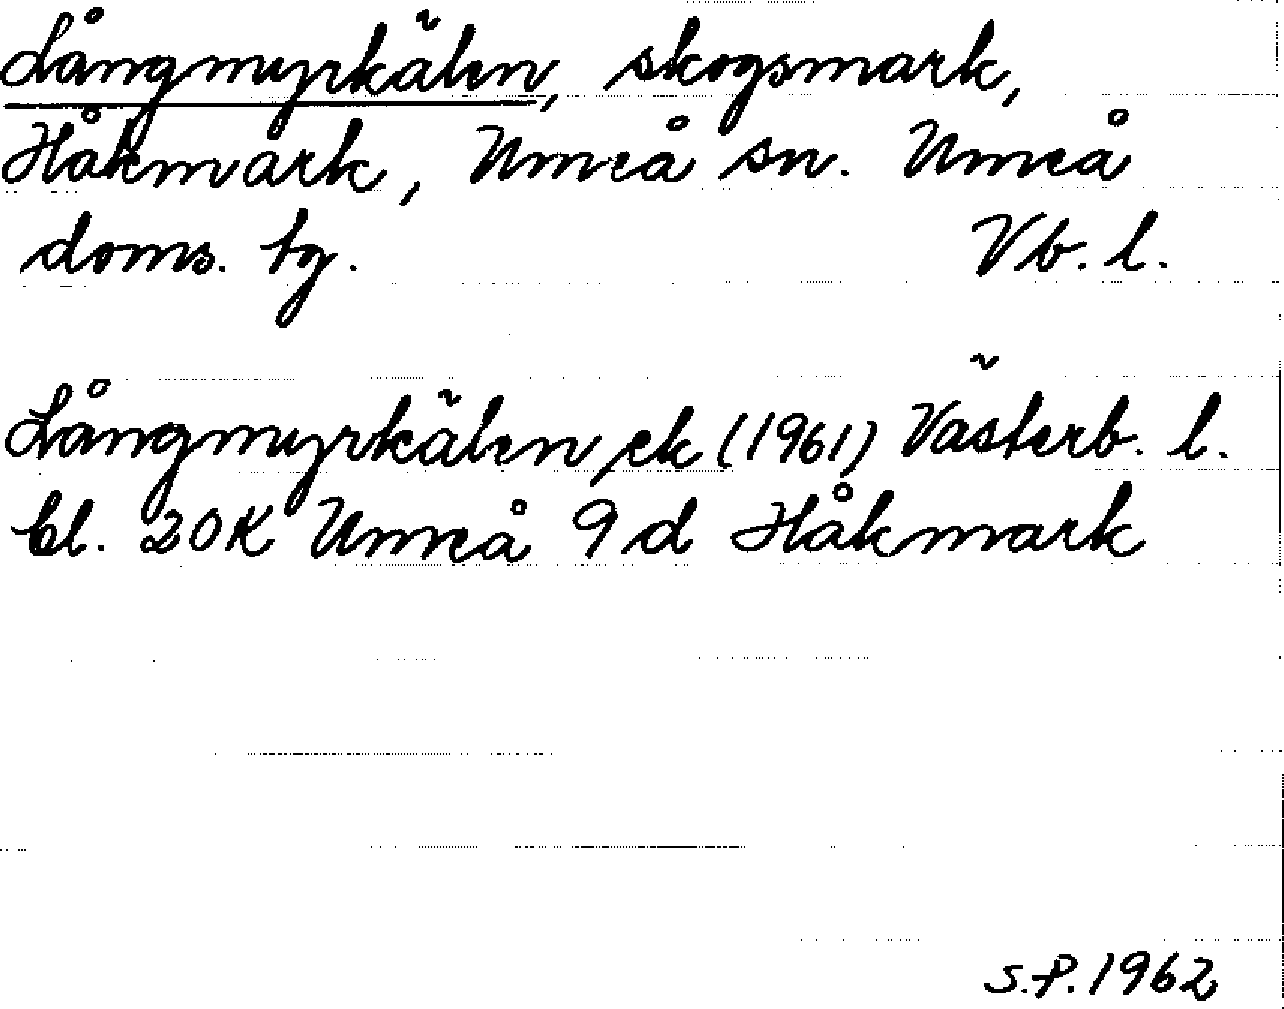 Långmyrkälen, skogsmark,
Håkmark, Umeå sn. Umeå
doms. tg. Vb. l.
Långmyrkälen ek (1961) Västerb. l.
bl. 20K Umeå 9d Håkmark
S.P. 1962